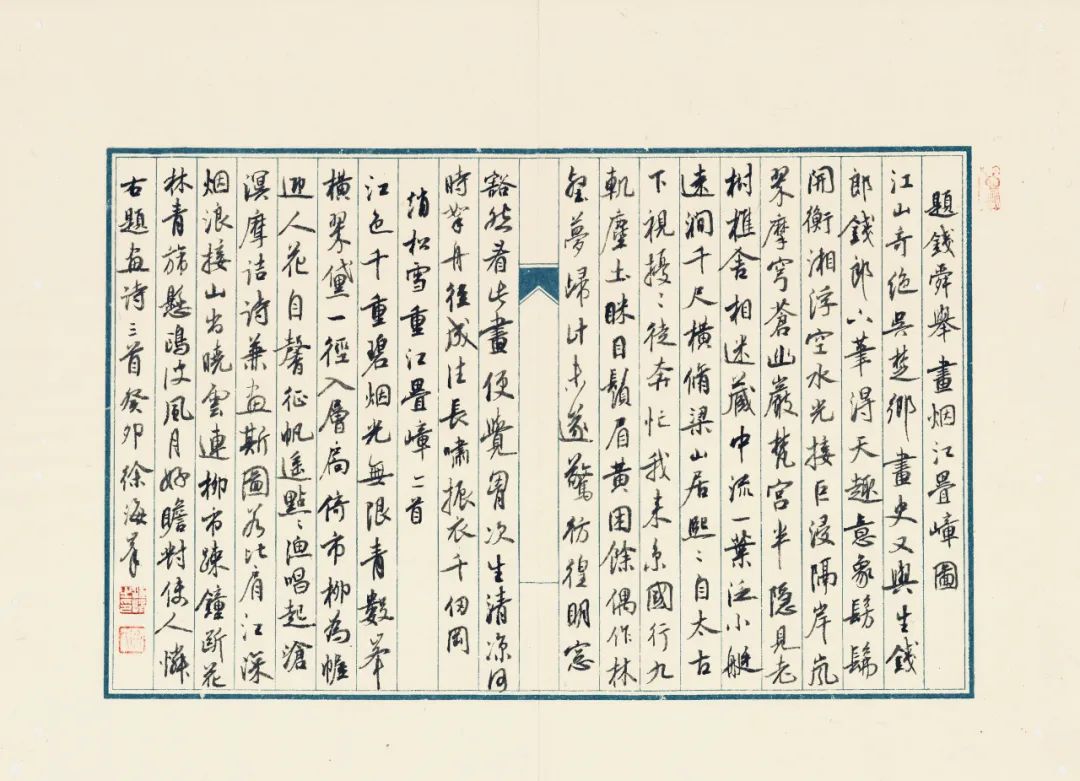 題錢舜舉畫烟江疊嶂圖
江山奇絶吳楚鄉畫史又與生錢
郎錢郎下筆得天趣意象髣髴
開衡湘浮空水光接巨浸隔岸嵐
翠摩穹蒼幽巖梵宮半隱見老
樹樵舍相迷藏中流一葉泛小艇
遠澗千尺橫脩梁山居熙〻自太古
下視擾〻徒奔忙我来京國行九
軌塵土眯目鬚眉黄困餘偶作林
壑夢歸計未遂驚彷徨明窓
豁然看此畫便覺胃次生清涼何
時挐舟徑成往長嘯振衣千仞岡
趙松雪重江疊嶂二首
江色千重碧烟光無限青數峯
橫翠黛一徑入層扃倚市柳為幄
迎人花自馨征帆遥點〻漁唱起滄
溟摩詰詩兼畫斯圖若比肩江深
烟浪接山出曉雲連柳市疎鐘斷花
林青旆懸鴻波風月好瞻對使人憐
右題畫詩三首癸卯徐海